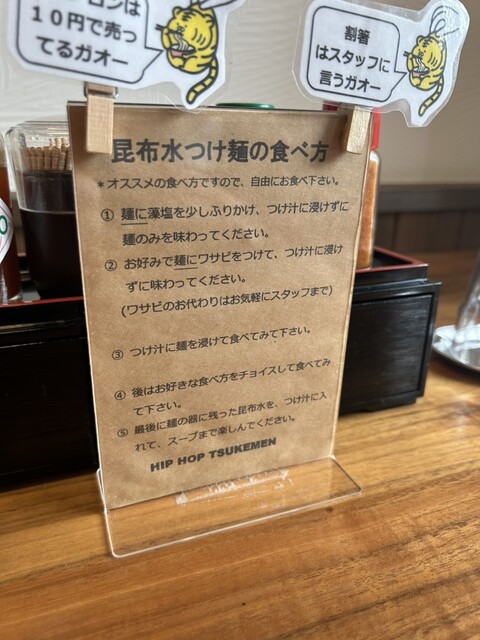 ロンは
１０円で売っ
てるガオー
割箸
はスタッフに
言うガオー
昆布水つけ麺の食べ方
＊オススメの食べ方ですので、自由にお食べ下さい。
① 麺に藻塩を少しふりかけ、つけ汁に浸けずに
麺のみを味わってください。
② お好みで麺にワサビをつけて、つけ汁に浸け
ずに味わってください。
(ワサビのお代わりはお気軽にスタッフまで)
③ つけ汁に麺を浸けて食べてみて下さい。
④ 後はお好きな食べ方をチョイスして食べてみ
て下さい。
⑤ 最後に麺の器に残った昆布水を、つけ汁に入
れて、スープまで楽しんでください。
HIP HOP TSUKEMEN